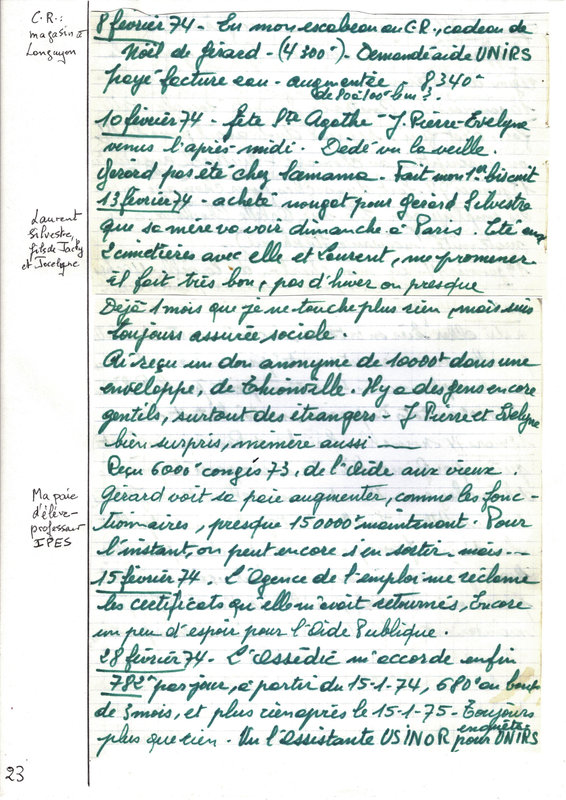 C.R. :
magasin à
Longuyon
8 février 74 - Eu mon escabeau au C.R., cadeau de
Noël de Gérard - (4 300f) - Demandé aide UNIRS
payé facture eau - augmentée - 8340f
de 80 à 100f le m³.
10 février 74 - fête Ste Agathe - J. Pierre - Evelyne
venus l'après-midi. Dédé vu la veille.
Gérard pas été chez Samama - Fait mon 1er biscuit
13 février 74 - acheté nougat pour Gérard Silvestre
que sa mère va voir dimanche à Paris. Eté aux
2 cimetières avec elle et Laurent, me promener
il fait très bon, pas d'hiver ou presque
Laurent
Silvestre,
fils de Jacky
et Jocelyne
Déjà 1 mois que je ne touche plus rien, mais suis
toujours assurée sociale.
Ai reçu un don anonyme de 10000f dans une
enveloppe, de Thionville. Il y a des gens encore
gentils, surtout des étrangers - J. Pierre et Evelyne
bien surpris, mémère aussi —
Reçu 6000f congés 73, de l'Aide aux vieux.
Gérard voit sa paie augmenter, comme les fonc-
tionnaires, presque 150000f maintenant. Pour
l'instant, on peut encore s'en sortir, mais...
Ma paie
d'élève-
professeur
IPES
15 février 74. L'Agence de l'emploi me réclame
les certificats qu'elle m'avait retournés, Encore
un peu d'espoir pour l'Aide Publique.
28 février 74 - L'Assédic m'accorde enfin
782f par jour, à partir du 15-1-74, 680f au bout
de 3 mois, et plus rien après le 15-1-75 - Toujours
plus que rien - Vu l'assistante USINOR enquête pour UNIRS
23